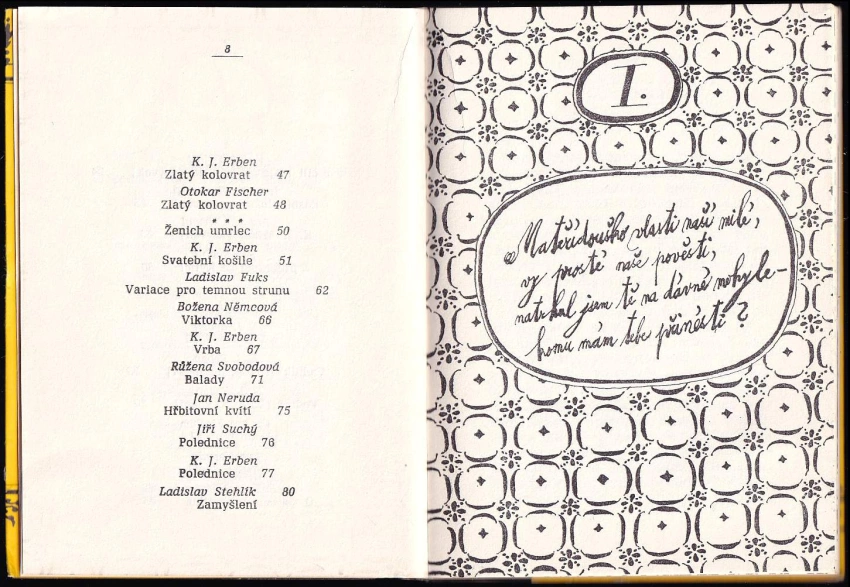 8
K. J. Erben
Zlatý kolovrat 47
Otokar Fischer
Zlatý kolovrat 48
* * *
Ženich umrlec 50
K. J. Erben
Svatební košile 51
Ladislav Fuks
Variace pro temnou strunu 62
Božena Němcová
Viktorka 66
K. J. Erben
Vrba 67
Růžena Svobodová
Balady 71
Jan Neruda
Hřbitovní kvítí 75
Jiří Suchý
Polednice 76
K. J. Erben
Polednice 77
Ladislav Stehlík 80
Zamyšlení
I.
Mateřídouško vlasti naší milé,
vy prosté naše pověsti,
natrhal jsem tě na dávné mohyle—
komu mám tebe přinésti?